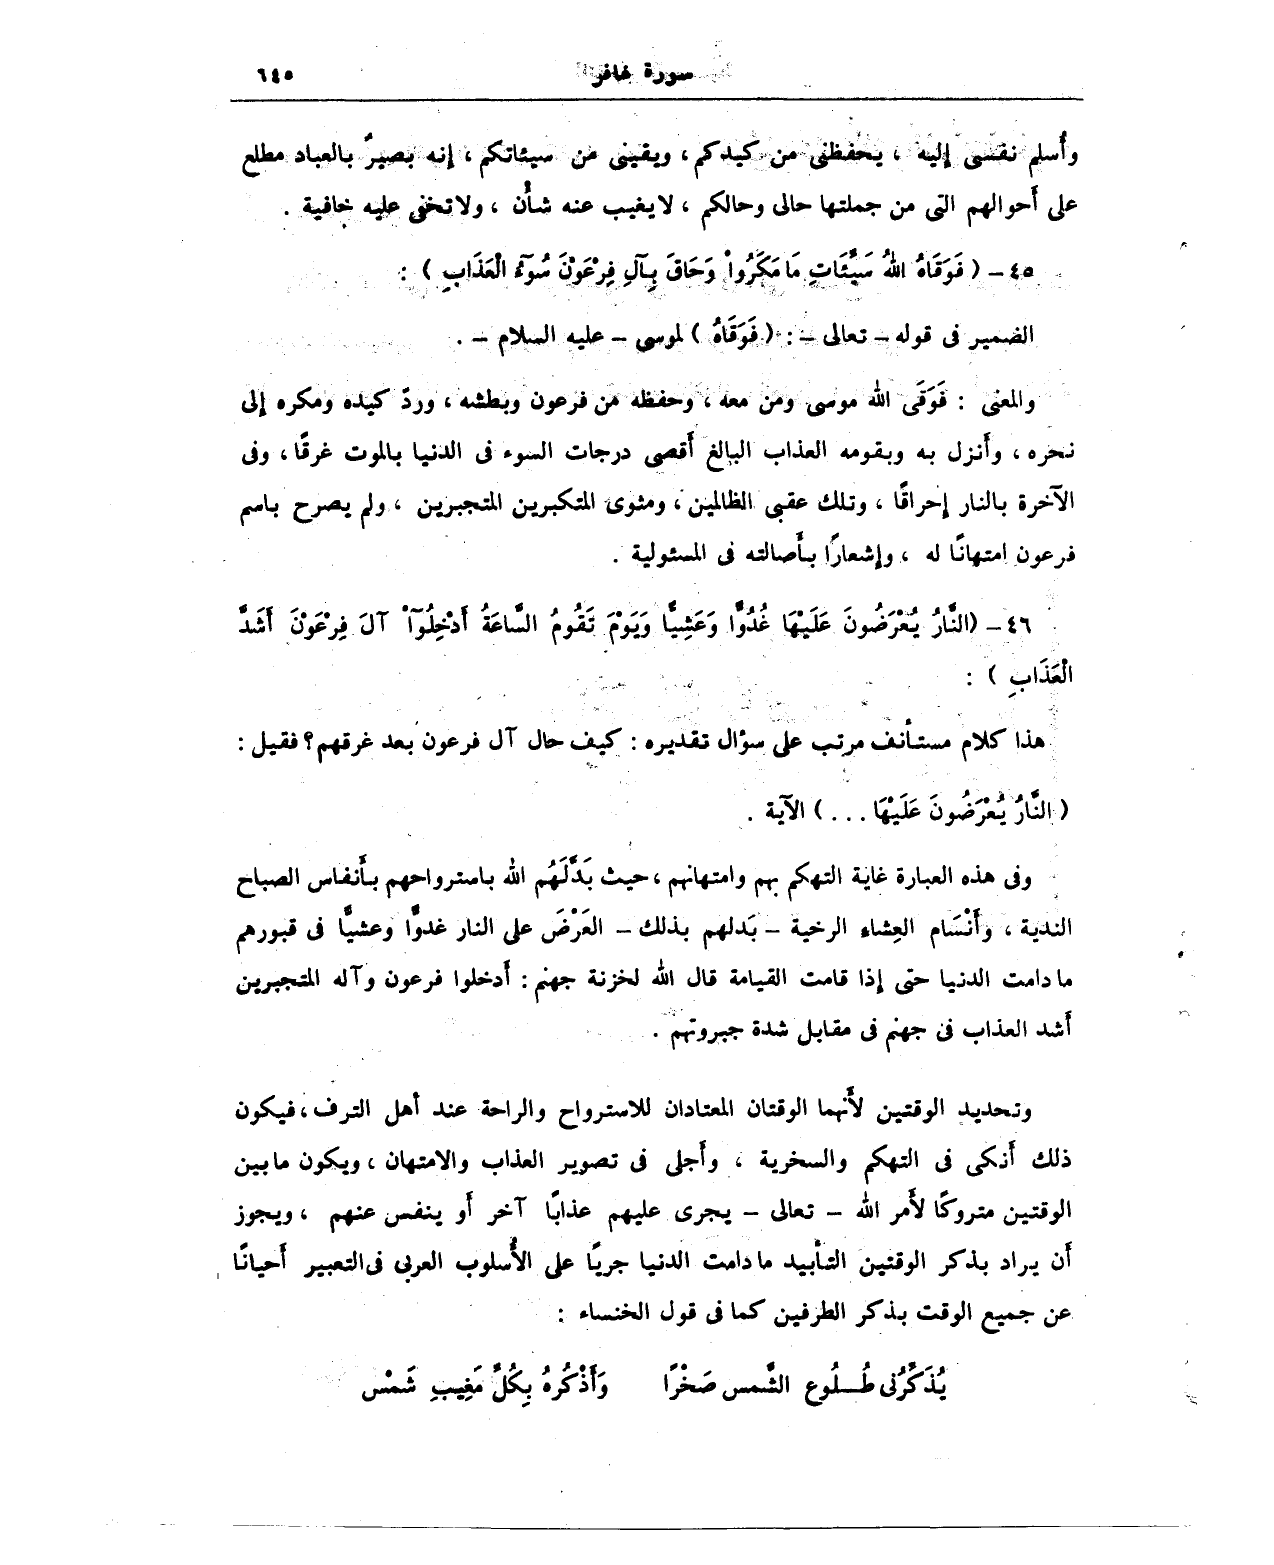 سورة غافر ٦٤٥
وأُسلم نفسى إليه ، يحفظنى من كيدكم ، ويقينى من سيئاتكم ، إنه بصيرٌ بالعباد مطلع
على أحوالهم التى من جملتها حالى وحالكم ، لايغيب عنه شأْن ، ولاتخفى عليه خافية .
٤٥ – ( فَوَقَاهُ اللهُ سَيِّئَاتِ مَا مَكَرُواْ وَحَاقَ بِآلِ فِرْعَوْنَ سُوٓءُ الْعَذَابِ ) :
الضمير فى قوله – تعالى – : ( فَوَقَاهُ ) لموسى – عليه السلام – .
والمعنى : فَوَقَى الله موسى ومن معه ، وحفظه من فرعون وبطشه ، وردّ كيده ومكره إلى
نحره ، وأَنزل به وبقومه العذاب البالغ أَقصى درجات السوء فى الدنيا بالموت غرقًا ، وفى
الآخرة بالنار إحراقًا ، وتلك عقبى الظالمين ، ومثوى المتكبرين المتجبرين ، ولم يصرح باسم
فرعون امتهانًا له ، وإشعارًا بأَصالته فى المسئولية .
٤٦ – (النَّارُ يُعْرَضُونَ عَلَيْهَا غُدُوًّا وَعَشِيًّا وَيَوْمَ تَقُومُ السَّاعَةُ أَدْخِلُوٓاْ آلَ فِرْعَوْنَ أَشَدَّ
الْعَذَابِ ) :
هذا كلام مستأْنف مرتب على سؤال تقديره : كيف حال آل فرعون بعد غرقهم؟ فقيل :
( النَّارُ يُعْرَضُونَ عَلَيْهَا . . . ) الآية .
وفى هذه العبارة غاية التهكم بهم وامتهانهم ، حيث بَدَّلَهُم الله باسترواحهم بأَنفاس الصباح
الندية ، وأَنْسَام العِشاء الرخية – بَدلهم بذلك – العَرْضَ على النار غدوًّا وعشيًّا فى قبورهم
مادامت الدنيا حتى إذا قامت القيامة قال الله لخزنة جهنم : أَدخلوا فرعون وآله المتجبرين
أَشد العذاب فى جهنم فى مقابل شدة جبروتهم .
وتحديد الوقتين لأَنهما الوقتان المعتادان للاسترواح والراحة عند أهل الترف ، فيكون
ذلك أَنكى فى التهكم والسخرية ، وأَجلى فى تصوير العذاب والامتهان ، ويكون مابين
الوقتين متروكًا لأَمر الله – تعالى – يجرى عليهم عذابًا آخر أَو ينفس عنهم ، ويجوز
أَن يراد بذكر الوقتين التأْبيد مادامت الدنيا جريًا على الأُسلوب العربى فى التعبير أَحيانًا
عن جميع الوقت بذكر الطرفين كما فى قول الخنساء :
يُذَكِّرُنى طُـلُوع الشَّمس صَخْرًا وَأَذْكُرهُ بِكُلِّ مَغِيبِ شَمْس